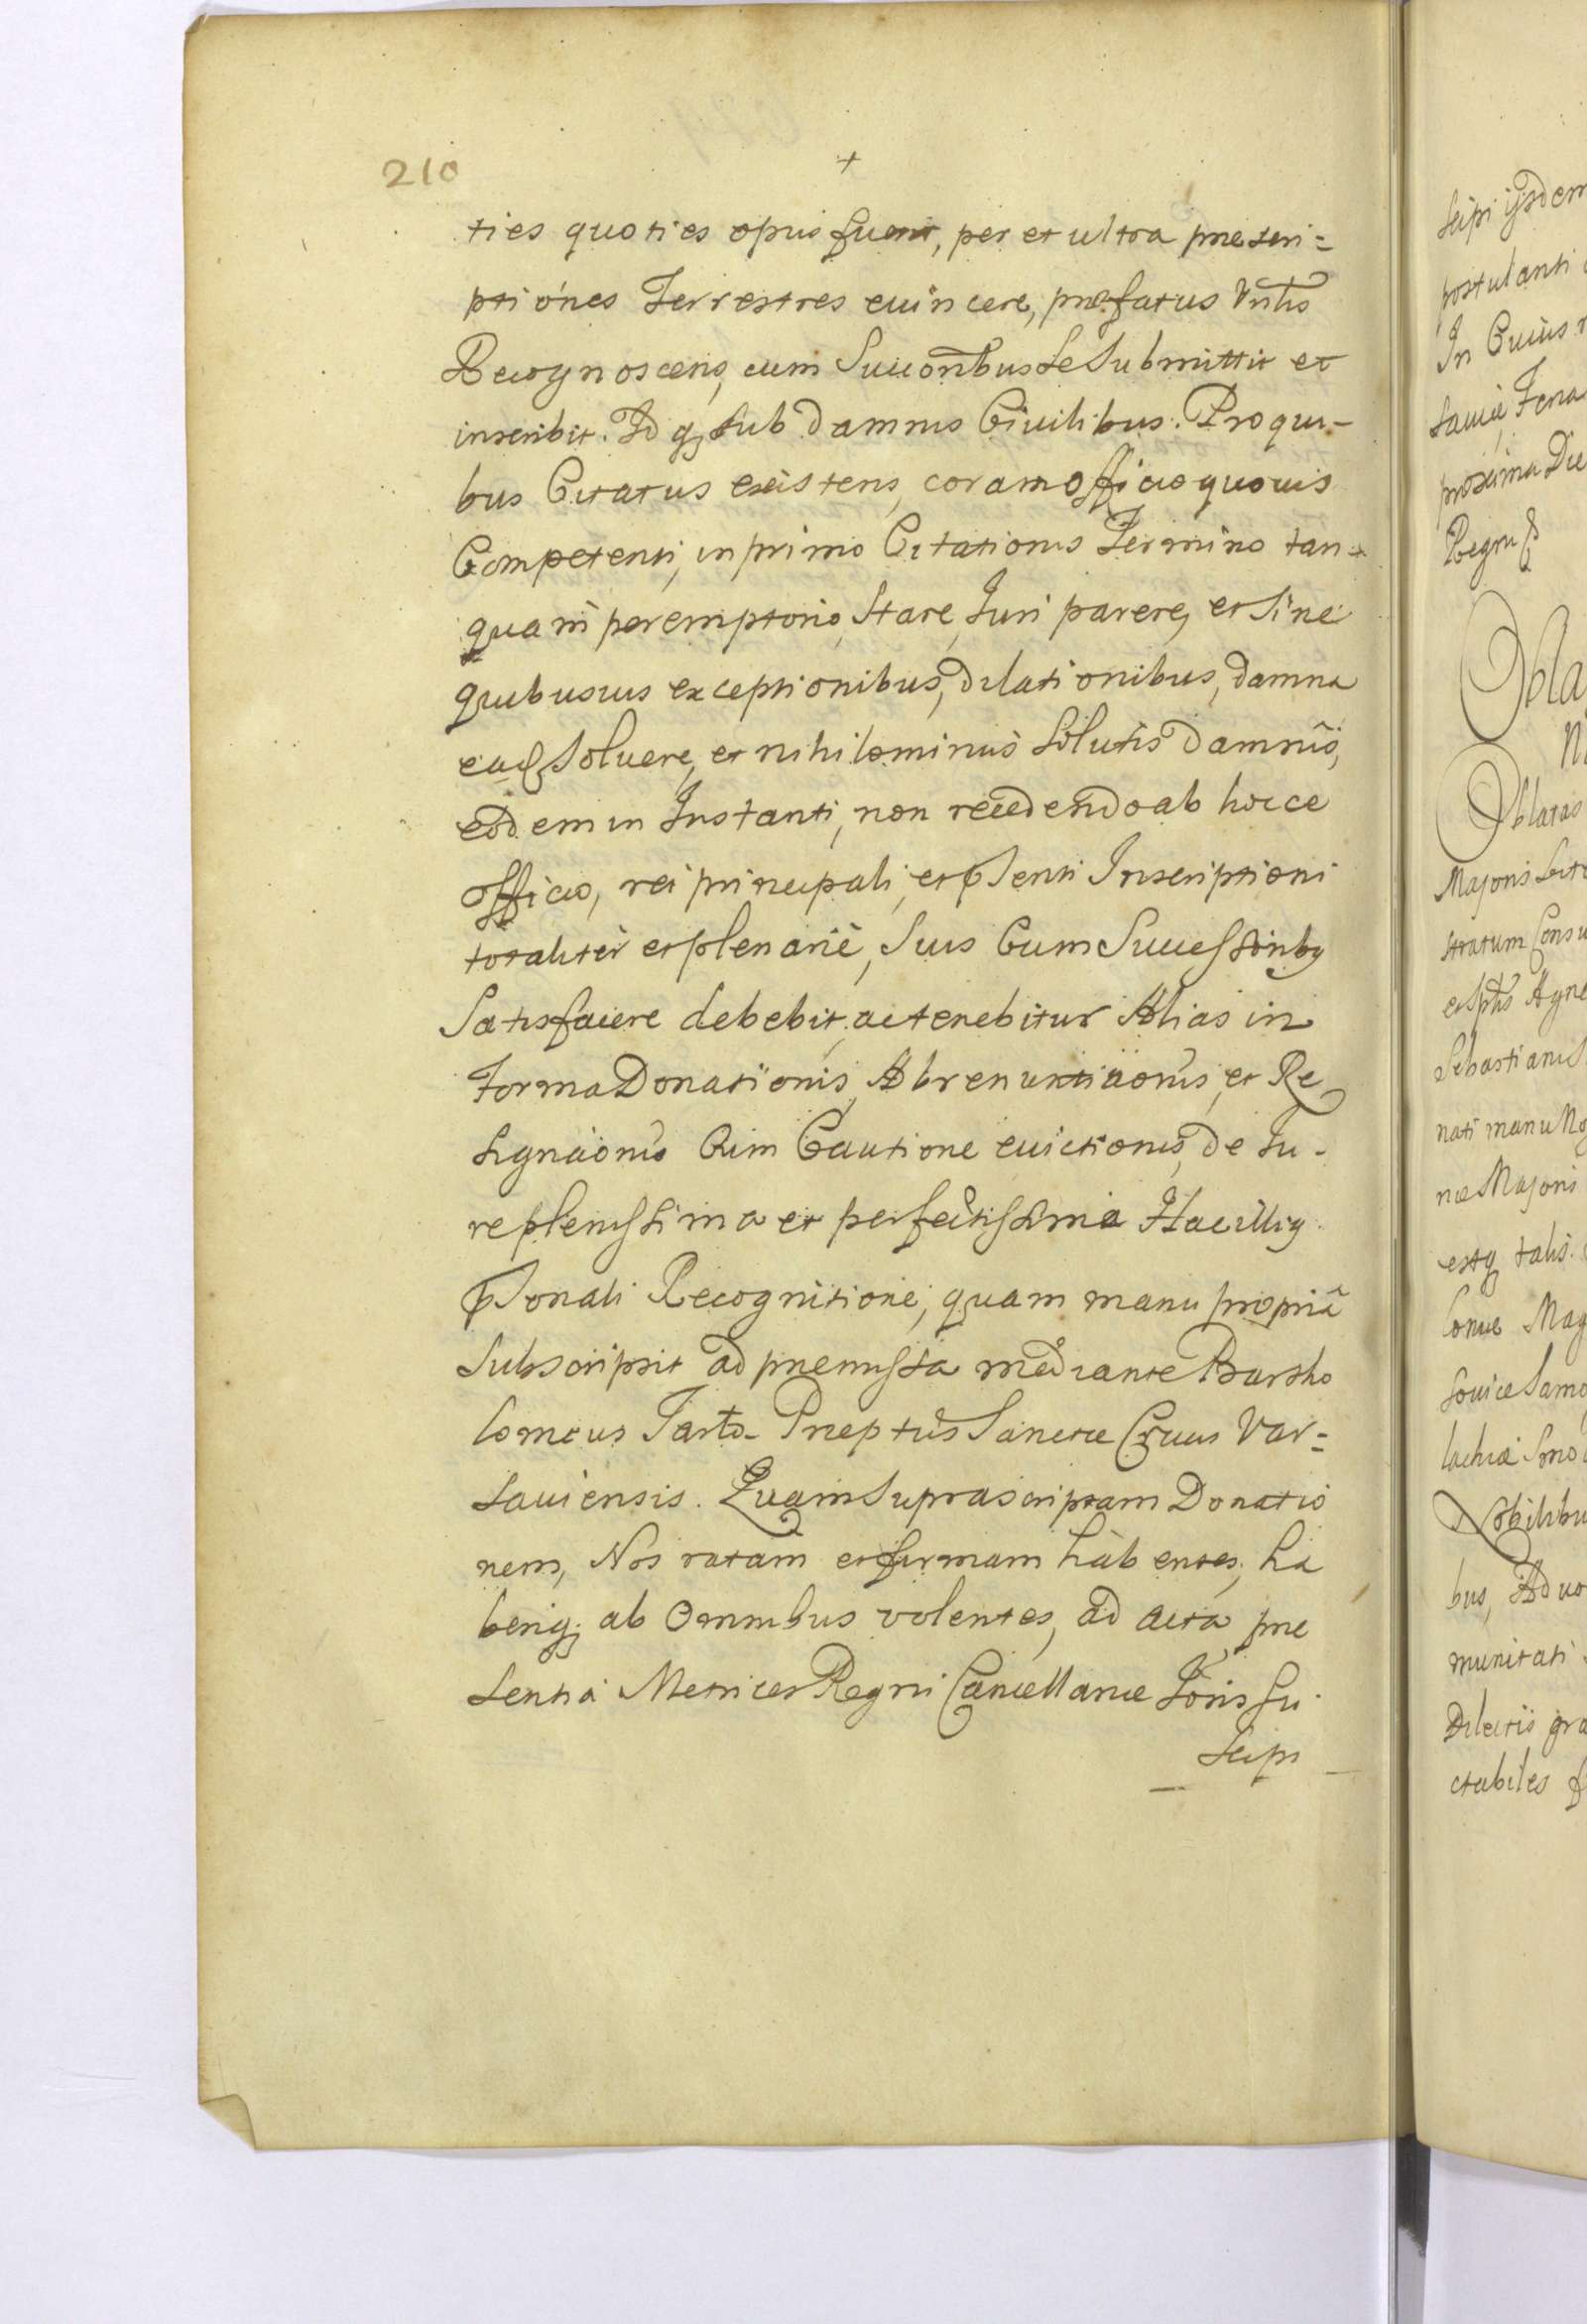 210
+
ties quoties opus fuerit, per et ultra præscri=
ptiones Terrestres evincere, præfatus Vnlis
Recognoscens, cum Succoribus Se Submittit et
inscribit. Idq₃ sub damnis Civilibus. Pro qui-
bus Citatus existens, coram officio quovis
Competenti, in primo Citationis Termino tan-
quam peremptorio, Stare, Juri parere, et Sine
quibusvis exceptionibus, dilationibus, damna
eaq₃ Soluere, et nihilominus Solutis damnis,
eodem in Instanti, non recedendo ab hocce
officio, rei principali, et pnsenti Inscriptioni
totaliter et plenarie, Suis Cum Successoribg
Satisfacere debebit, ac tenebitur Alias in
Forma Donationis, Abrenuntiaonis, et Re
signaonis Cum Cautione evictionis, de Iu-
re plenissima et perfectissima Hac illig
psonali Recognitione, quam manu propriâ
Subscripsit ad præmissa mediante Bartho
lomeus Tarło Præptus Sanctæ Crucis Var=
saviensis. Quam Suprascriptam Donatio
nem, Nos ratam et firmam habentes, ha
beriq₃ ab Omnibus volentes, ad acta præ
sentia Metrices Regni Cancellariæ Joris su
scipi
scipi ijsdem
postulanti
In Cuius
saviæ Feria
proxima Die
Regni
Obla
Oblatas
Majoris
stratum Consu
Agne
Sebastianus
nati manu
næ Majoris
estq₃ talis.
loniæ Mag
soviæ Samo
lachiæ Smo
Nobilibu
bus, Advo
munitati
Dilectis gra
ctabiles